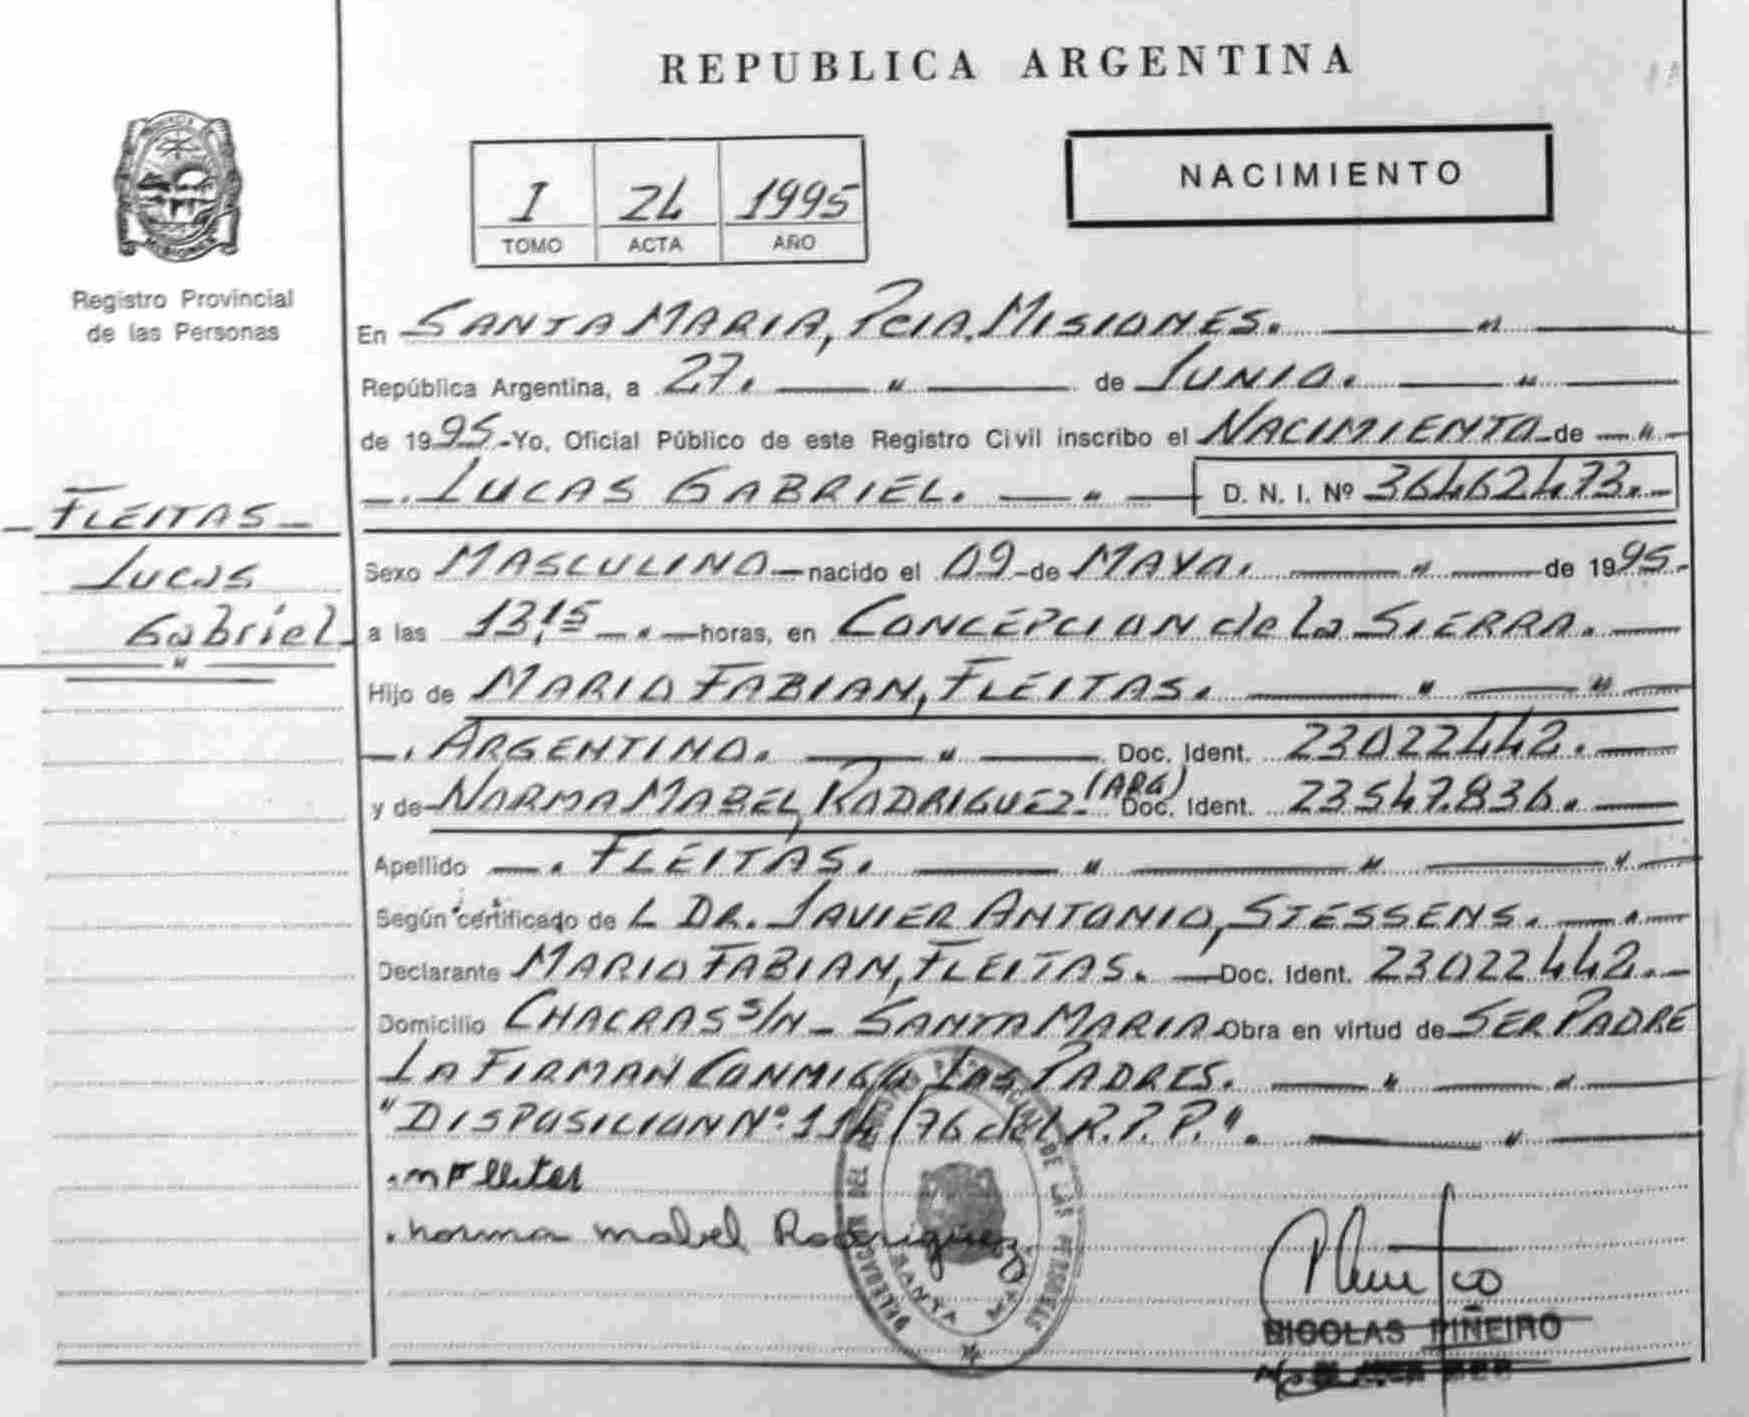 REPUBLICA ARGENTINA
NACIMIENTO
I 24 1995
TOMO ACTA AÑO
Registro Provincial
de las Personas
FLEITAS
Lucas
Gabriel
En SANTA MARIA, PCIA. MISIONES.
República Argentina, a 27. de JUNIO.
de 1995-Yo, Oficial Público de este Registro Civil inscribo el NACIMIENTO de
LUCAS GABRIEL. D. N. I. Nº 36462473.
Sexo MASCULINO nacido el 09 de MAYO. de 1995.
a las 13,15 horas, en CONCEPCION de la SIERRA.
Hijo de MARIO FABIAN, FLEITAS.
ARGENTINO. Doc. Ident. 23022442.
y de NORMA MABEL, RODRIGUEZ. (ARG) Doc. Ident. 23547.836.
Apellido FLEITAS.
Según certificado de L DR. JAVIER ANTONIO, STESSENS.
Declarante MARIO FABIAN, FLEITAS. Doc. Ident. 23022442.
Domicilio CHACRAS S/N - SANTA MARIA Obra en virtud de SER PADRE
LA FIRMAN CONMIGO LOS PADRES.
"DISPOSICION Nº: 114/76 del R.P.P.".
norma mabel Rodriguez
NICOLAS PIÑEIRO